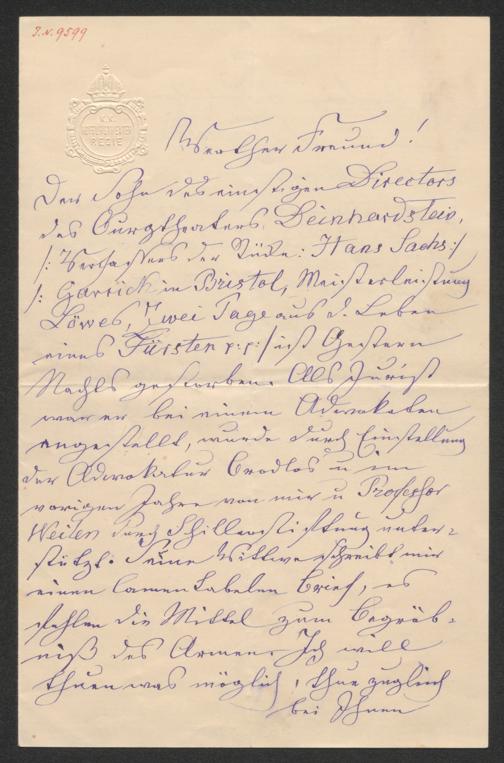 I.N. 9599
K.K.
HOFBURGTHEATER
REGIE
Werther Freund!
Der Sohn des einstigen Directors
des Burgtheaters, Deinhardstein,
/: Verfassers der Stücke: Hans Sachs :/
/: Garrick in Bristol, Meisterleistung
Löwes, Zwei Tage aus d. Leben
eines Fürsten p: p: / ist Gestern
Nachts gestorben. Als Jurist
war er bei einem Advokaten
angestellt, wurde durch Einstellung
der Advokatur brodlos u im
vorigen Jahre von mir u Professor
Weilen durch Schillerstiftung unter-
stützt. Seine Wittwe schreibt mir
einen lamentabelen Brief, es
fehlen die Mittel zum Begräb-
niß des Armen. Ich will
thuen was möglich, thue zugleich
bei Ihnen